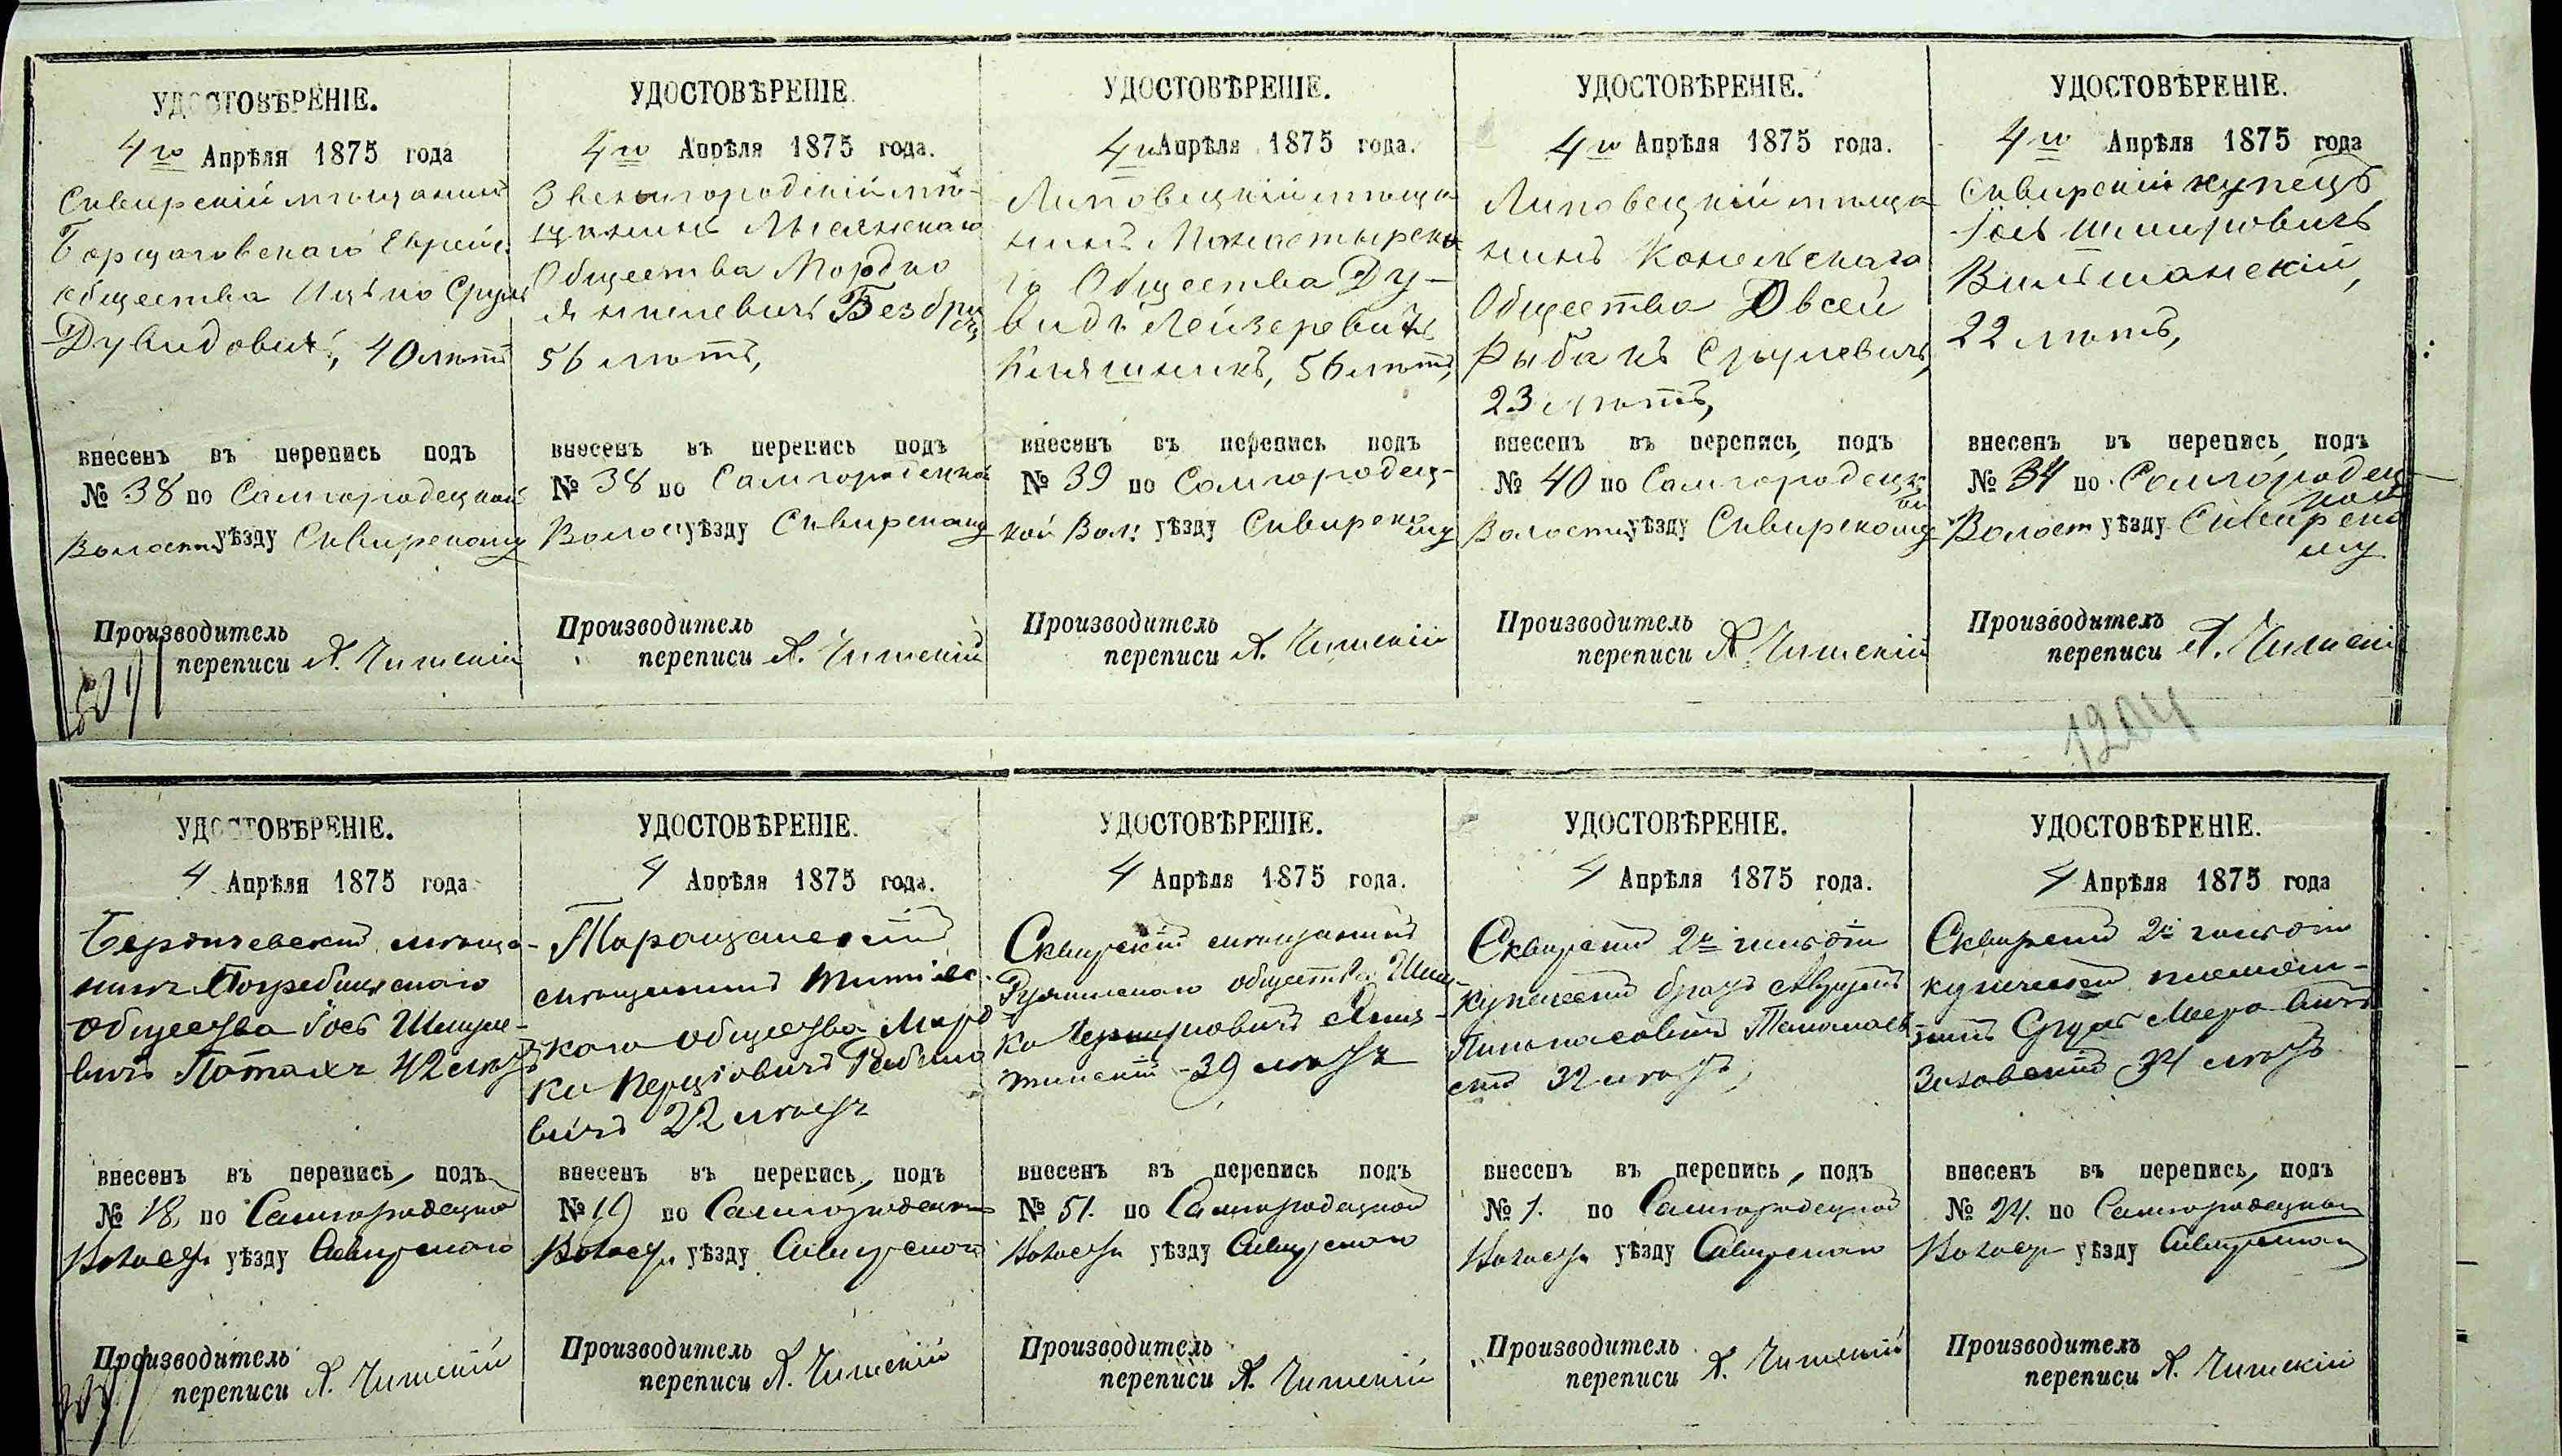 УДОСТОВѢРЕНІЕ.
4го Апрѣля 1875 года
Сквирскій мѣщанинъ
Борщаговскаго Еврейс.
общества Ицько Сруль
Дувидовичъ, 40 лѣтъ
внесенъ въ перепись подъ
№ 38 по Самгородецкой
Волости уѣзду Сквирскому
Производитель
переписи А. Чишскій
УДОСТОВѢРЕНІЕ
4го Апрѣля 1875 года.
Звенигородскій мѣ-
щанинъ Лысянскаго
Общества Мордко
56 лѣтъ,
внесенъ въ перепись подъ
№ 38 по Самгородецкой
Волос уѣзду Сквирскому
Производитель
переписи А. Чишскій
УДОСТОВѢРЕНІЕ.
4го Апрѣля 1875 года.
Липовецкій мѣща
нинъ Монастырска
го Общества Ду-
видъ Лейзеровичъ
56 лѣтъ,
внесенъ въ перепись подъ
№ 39 по Самгородец-
кой Вол: уѣзду Сквирскому
Производитель
переписи А. Чишскій
УДОСТОВѢРЕНІЕ.
4го Апрѣля 1875 года.
Липовецкій мѣща
нинъ Конельскаго
Общества Овсей
Рыбакъ Срулевичъ,
23 лѣтъ,
внесенъ въ перепись подъ
№ 40 по Самгородецкой
Волости уѣзду Сквирскому
Производитель
переписи А. Чишскій
УДОСТОВѢРЕНІЕ.
4го Апрѣля 1875 года
Сквирскій купецъ
Іось Шмировичъ
Вильшанскій,
22 лѣтъ,
внесенъ въ перепись подъ
№ 34 по Самгородец
кой
Волост уѣзду Сквирско
му
Производитель
переписи А. Чишскій
1204
УДОСТОВѢРЕНІЕ.
4 Апрѣля 1875 года
Бердичевскій мѣща-
нинъ Погребищскаго
общества Іось Шмуле-
вичъ Поташъ 42 лѣтъ
внесенъ въ перепись подъ
№ 18, по Самгородецкой
Волости уѣзду Сквирскаго
Производитель
переписи А. Чишскій
УДОСТОВѢРЕНІЕ.
4 Апрѣля 1875 года.
Таращанскій
мѣщанинъ Тетіевс
каго общества Мирд
вичъ 22 лѣтъ
внесенъ въ перепись подъ
№ 19 по Самгородецкой
Волости уѣзду Сквирскаго
Производитель
переписи А. Чишскій
УДОСТОВѢРЕНІЕ.
4 Апрѣля 1875 года.
Сквирскій мѣщанинъ
Ружинскаго общества Шми
39 лѣтъ
внесенъ въ перепись подъ
№ 51. по Самгородецкой
Волости уѣзду Сквирскаго
Производитель
переписи А. Чишскій
УДОСТОВѢРЕНІЕ.
4 Апрѣля 1875 года.
Сквирскій 2й гильдіи
купеческій братъ
32 лѣтъ,
внесенъ въ перепись, подъ
№ 1. по Самгородецкой
Волости уѣзду Сквирскаго
Производитель
переписи А. Чишскій
УДОСТОВѢРЕНІЕ.
4 Апрѣля 1875 года
Сквирскій 2й гильдіи
купеческій племян-
никъ Сруль Мееровичъ
34 лѣтъ
внесенъ въ перепись, подъ
№ 24. по Самгородецкой
Волости уѣзду Сквирскаго
Производитель
переписи А. Чишскій